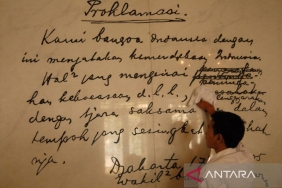 Proklamasi.
Kami bangsa Indonesia dengan
ini menjatakan kemerdekaan Indonesia.
Hal² jang mengenai
kekoeasaan d.l.l.,
dengan tjara saksama
tempoh jang sesingkat
nja.
Djakarta, 17
Wakil²
ANTARA